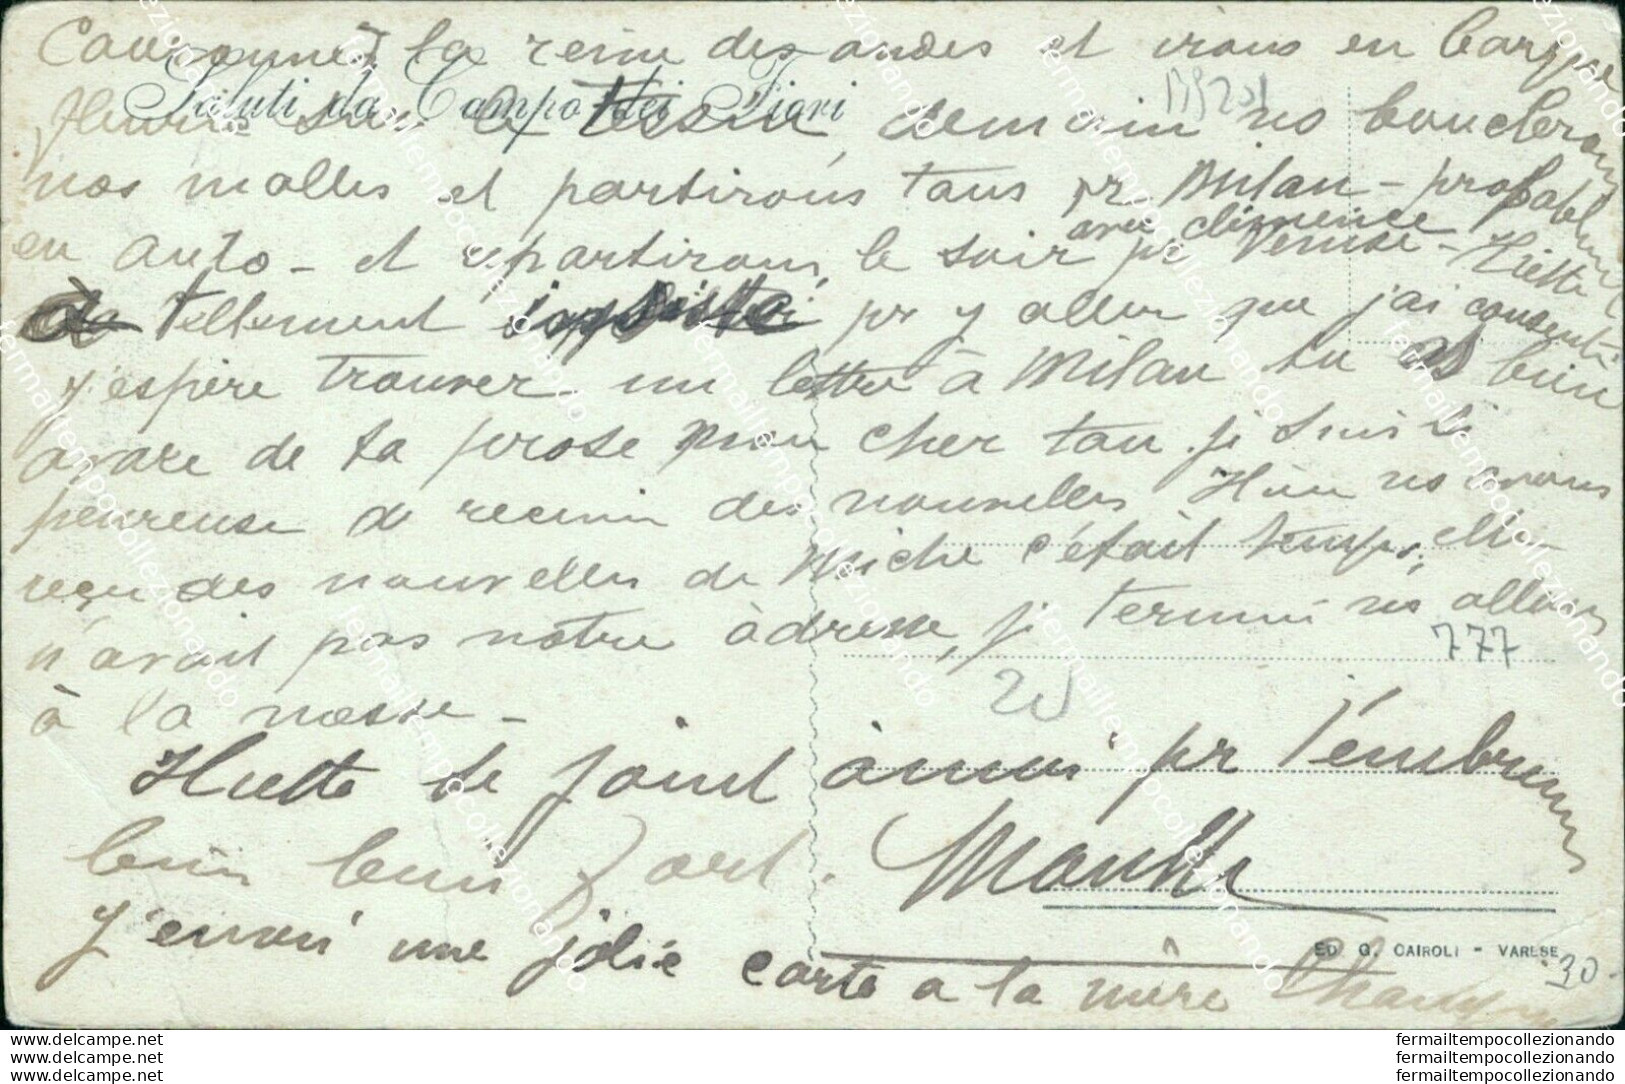 Couronner la reine des ondes et irons en barque
Saluti da Campo dei Fiori
fleurie sur le Tessin, demain ns bouclerons
nos malles et partirons tous pr Milan - probabl
en auto - et repartirons le soir pr Venise - Huette
avec clémence
tellement insisté pr y aller que j'ai consenti
j'espère trouver un lettre à Milan tu as bien
avare de ta prose mon cher tau. je suis si
heureuse de recevoir des nouvelles Hier ns avons
reçu des nouvelles de Miche c'était temps, elle
n'avait pas notre adresse, je termine ns allons
à la messe -
777
20
Huette se joint à moi pr t'embrasser
bien bien fort.
J'envoi une jolie carte a la mère
ED. G. CAIROLI - VARESE
30
www.delcampe.net
www.delcampe.net
www.delcampe.net
fermailtempocollezionando
fermailtempocollezionando
fermailtempocollezionando